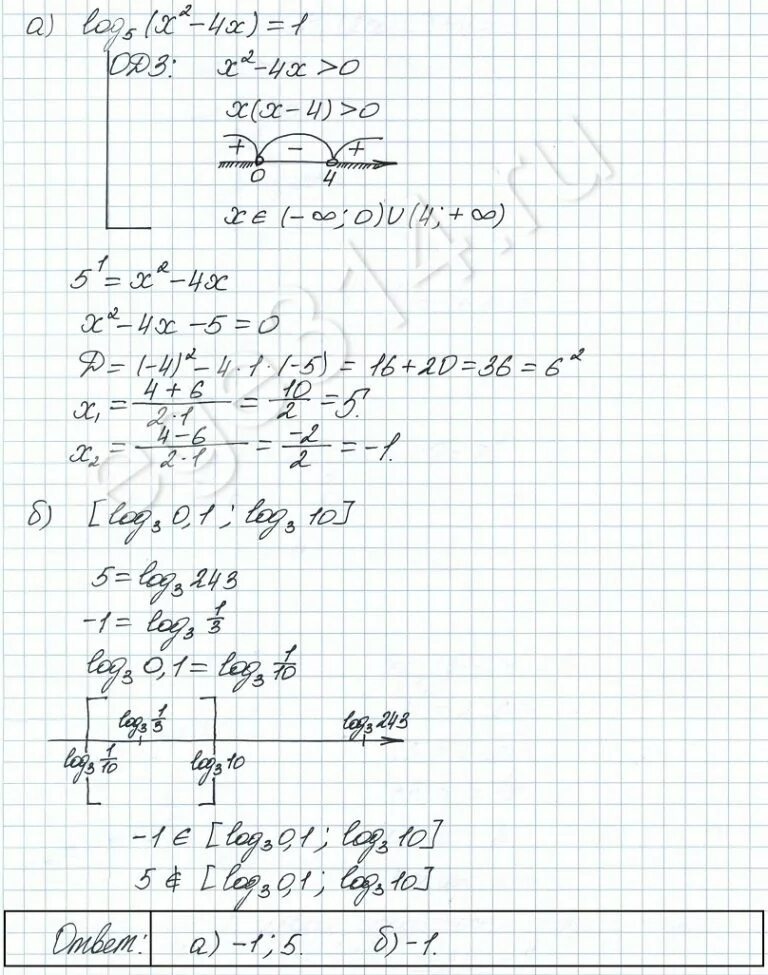 а) log₅(x²−4x)=1
ОДЗ: x²−4x>0
x(x−4)>0
+ − +
0 4
x∈(−∞; 0)∪(4; +∞)
5¹=x²−4x
x²−4x−5=0
Д=(−4)²−4·1·(−5)=16+20=36=6²
x₁=(4+6)/(2·1)=10/2=5.
x₂=(4−6)/(2·1)=−2/2=−1.
б) [log₃0,1; log₃10]
5=log₃243
−1=log₃1/3
log₃0,1=log₃1/10
log₃1/3 log₃243
log₃1/10 log₃10
−1∈[log₃0,1; log₃10]
5∉[log₃0,1; log₃10]
Ответ: а) −1; 5. б) −1.
ege314.ru